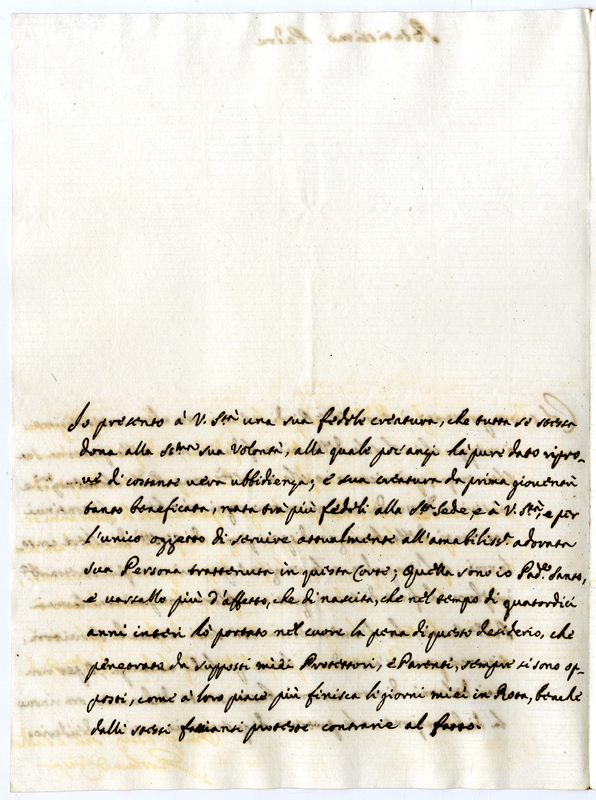 Io presento à V. Stà una sua fedele creatura, che tutta se stessa
dona alla Stma sua Volontà, alla quale poc'anzi hà pure dato ripro-
ve di costante vera ubbidienza; è sua creatura da prima gioventù
tanto beneficata, nata trà più fedeli alla Sta Sede, e à V. Stà, e per
l'unico oggetto di servire attualmente all'amabiliss.a adorata
sua Persona trattenuta in questa Corte; Quella sono io Pad.e Santo,
e vassallo più d'affetto, che di nascita, che nel tempo di quatordici
anni interi hò portato nel cuore la pena di questo desiderio, che
penetrato da supposti miei Protettori, e Parenti, sempre si sono op-
posti, come a loro piace più finisca li giorni miei in Rota, benche
dalli stessi faccianti proteste contrarie al fatto.